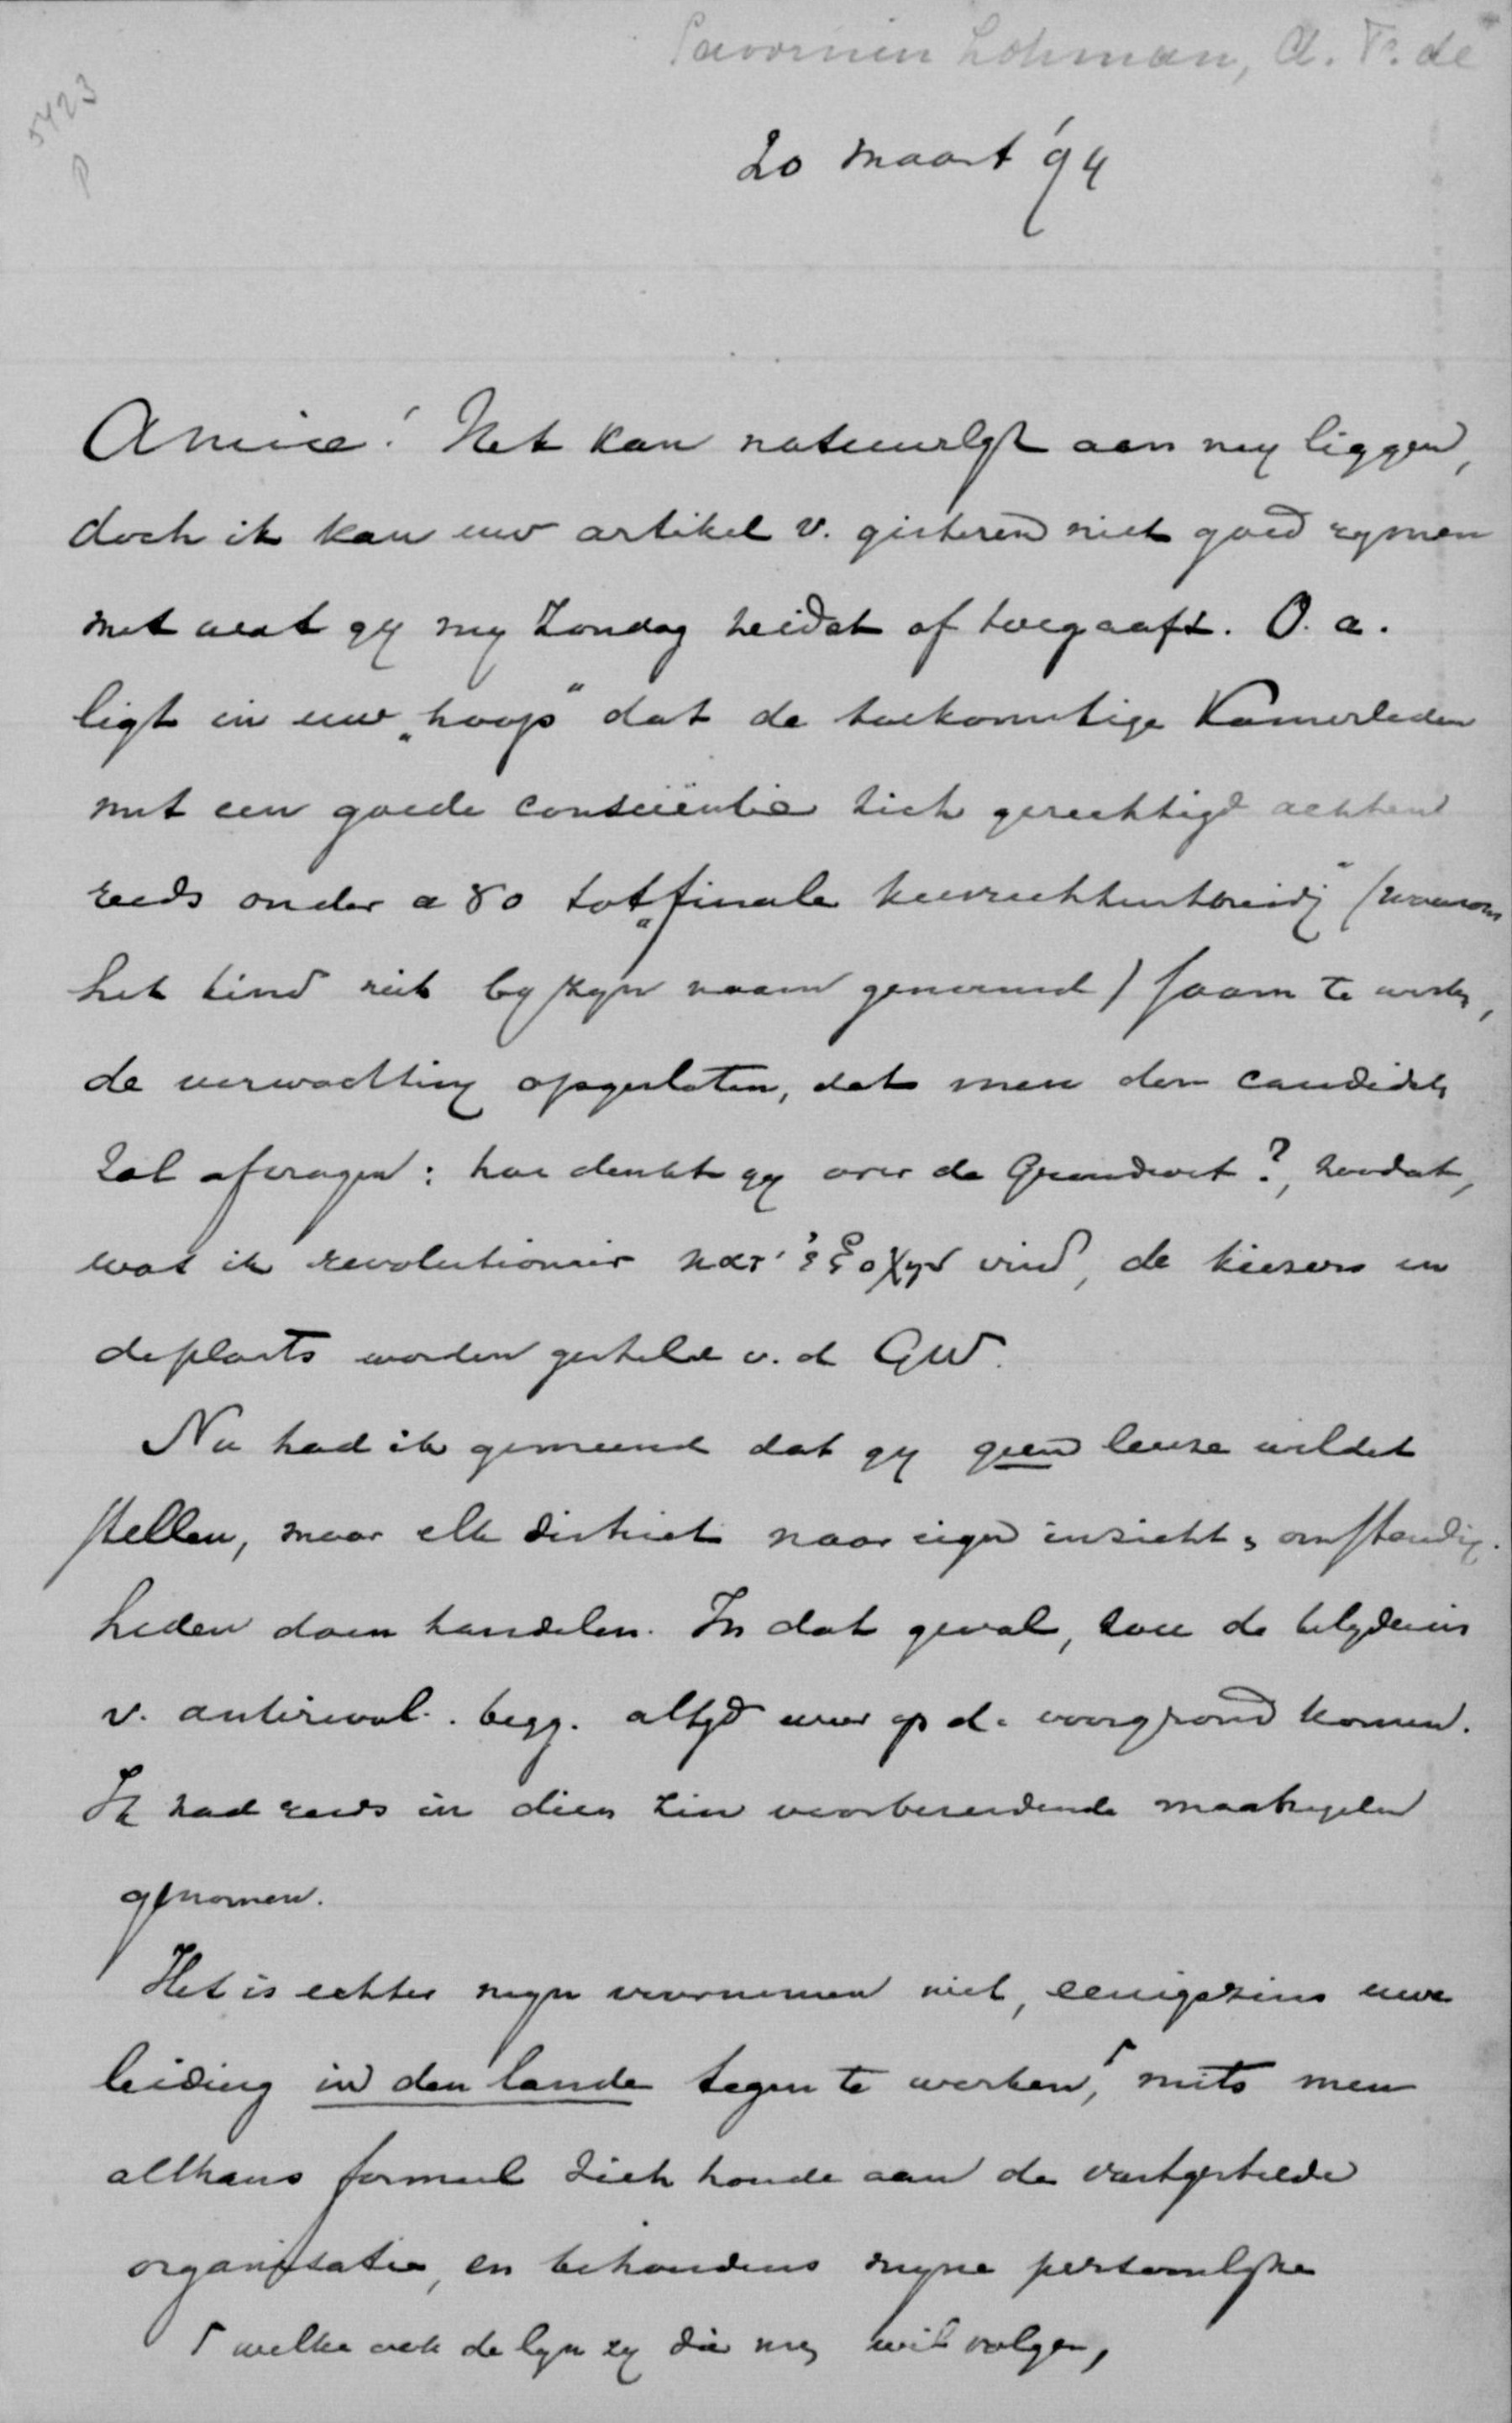 Savornin Lohman, A. F. de
5423
P
20 Maart '94
Amice! Het kan natuurlyk aan my liggen,
doch ik kan uw artikel v. gisteren niet goed rymen
met wat gy my Zondag zeidet of toegaaft. O.a.
ligt in uw „hoop" dat de toekomstige Kamerleden
met een goede consciëntie zich gerechtigd achten
reeds onder a 80 tot „finale kiesrechtuitbreidg" (waarom
het kind niet by zyn naam genoemd) saam te werken,
de verwachting opgesloten, dat men den candidaten
zal afvragen: hoe denkt gy over de Grondwet?, zoodat,
wat ik revolutionair κατ' ἐξοχὴν vind, de kiezers in
deplaats worden gesteld v. d GW.
Nu had ik gemeend dat gy geen leuze wildet
stellen, maar elk district naar eigen inzicht & omstandig-
heden doen handelen. In dat geval, zou de belydenis
v. antirevol. begg. altyd weer op de voorgrond komen.
Ik had reeds in dien zin voorbereidende maatregelen
genomen.
Het is echter myn voornemen niet, eenigszins uwe
leiding in den lande tegen te werken,⌈ mits men
althans formeel zich houde aan de vastgestelde
organisatie, en behoudens myne persoonlyke
⌈ welke ook de lyn zy die men wil volgen,